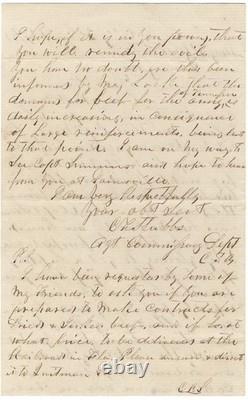 I hope, if it is in your power, that
you will remedy the evil.
You have no doubt, ere this been
informed by Maj Locke that the
demand for beef for the army of Tennessee is
daily increasing, in consequence
of large reinforcements, being sent
to that point. I am on my way to
see Capt Simmons and hope to hear
from you at Gainesville
I am very Respectfully
Your obt Servt
C E Stubbs
Agt Commissary Dept
C S A
P.S.
I have been requested by some of
my friends, to ask you if you are
prepared to make contracts for
Dried & beef, and if so at
what price, to be delivered at the
Railroad in Fla. Please answer & direct
it to Quitman
C E S
ebay